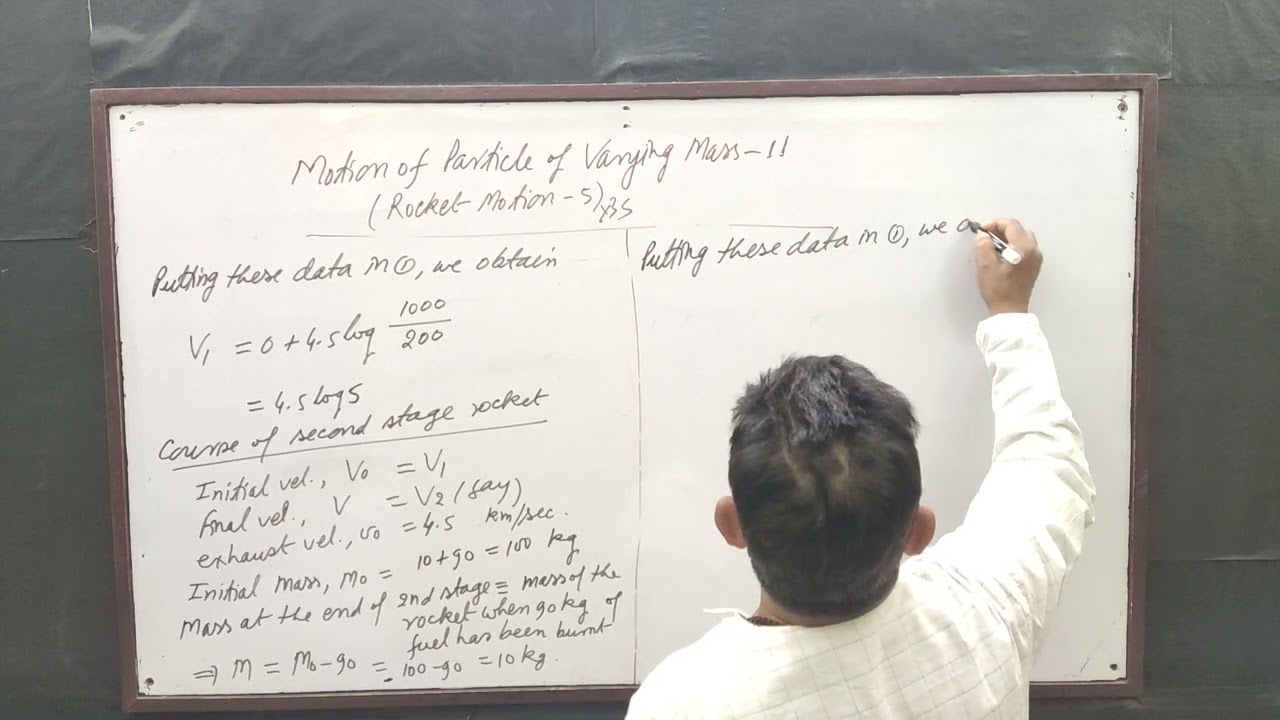 Motion of Particle of Varying Mass-11
(Rocket Motion-5)
Putting these data in ①, we obtain
V₁ = 0 + 4.5 log 1000/200
= 4.5 log 5
Course of second stage rocket
Initial vel., V₀ = V₁
final vel., V = V₂ (say)
exhaust vel., v₀ = 4.5 km/sec.
Initial mass, M₀ = 10+90 = 100 kg
Mass at the end of 2nd stage = mass of the
rocket when 90 kg of
fuel has been burnt
⇒ M = M₀-90 = 100-90 = 10 kg.
Putting these data in ①, we